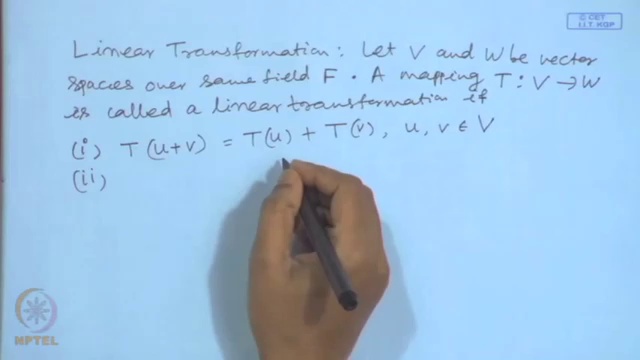 © CET
I.I.T. KGP
Linear Transformation: Let V and W be vector
spaces over same field F. A mapping T: V → W
is called a linear transformation if
(i) T(u+v) = T(u) + T(v), u, v ∈ V
(ii
NPTEL